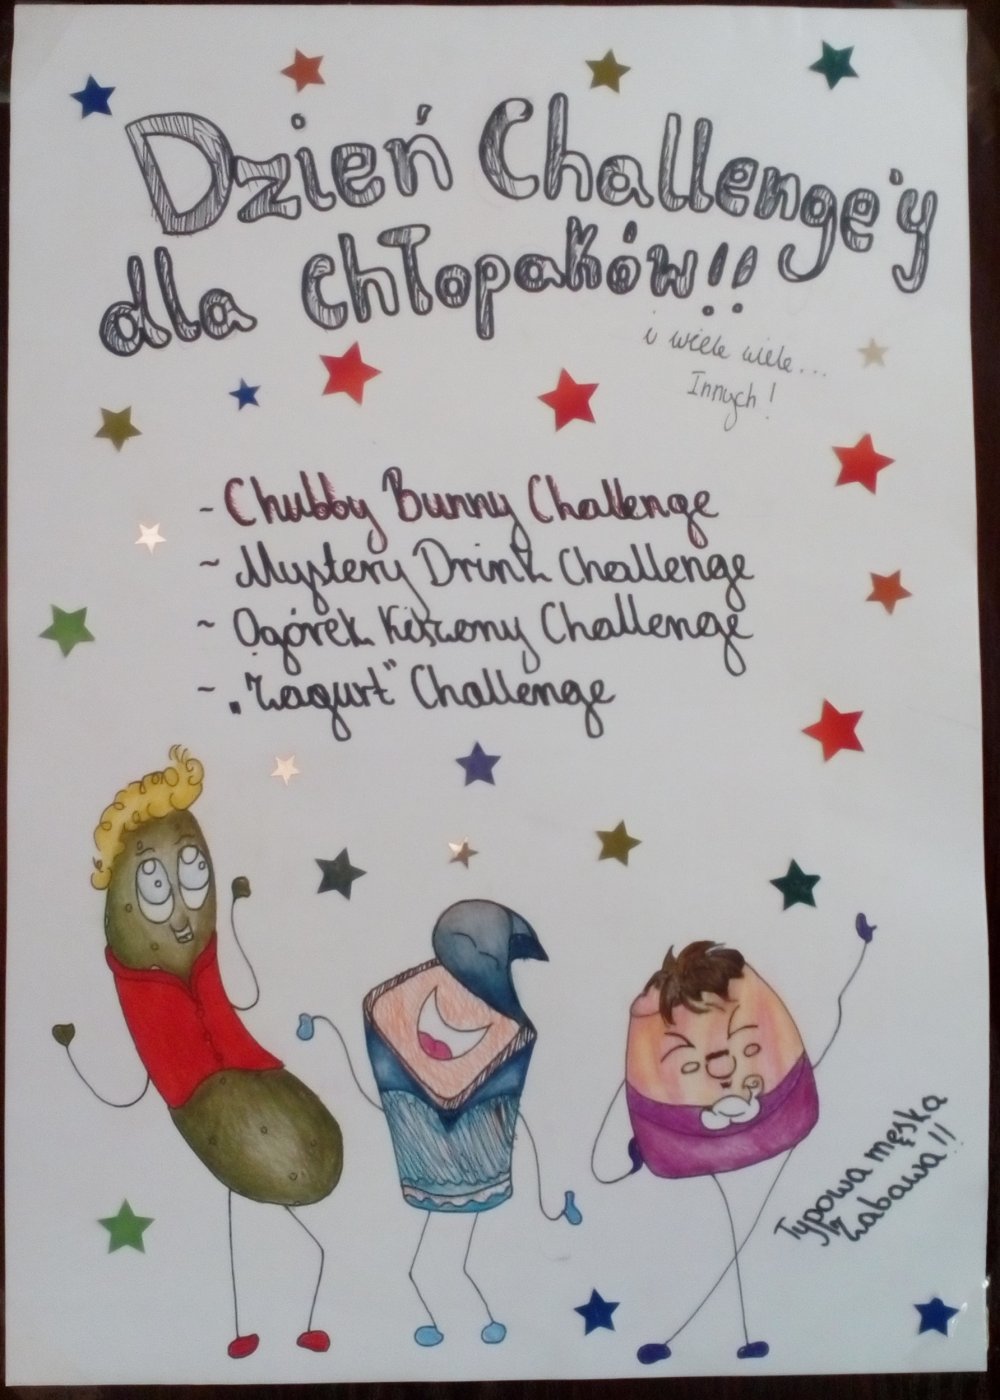 Dzień Challenge'y
dla Chłopaków!!
i wiele wiele...
Innych!
- Chubby Bunny Challenge
~ Mystery Drink Challenge
~ Ogórek Kiszony Challenge
~ „Żagurt" Challenge
Typowa męska
zabawa!!